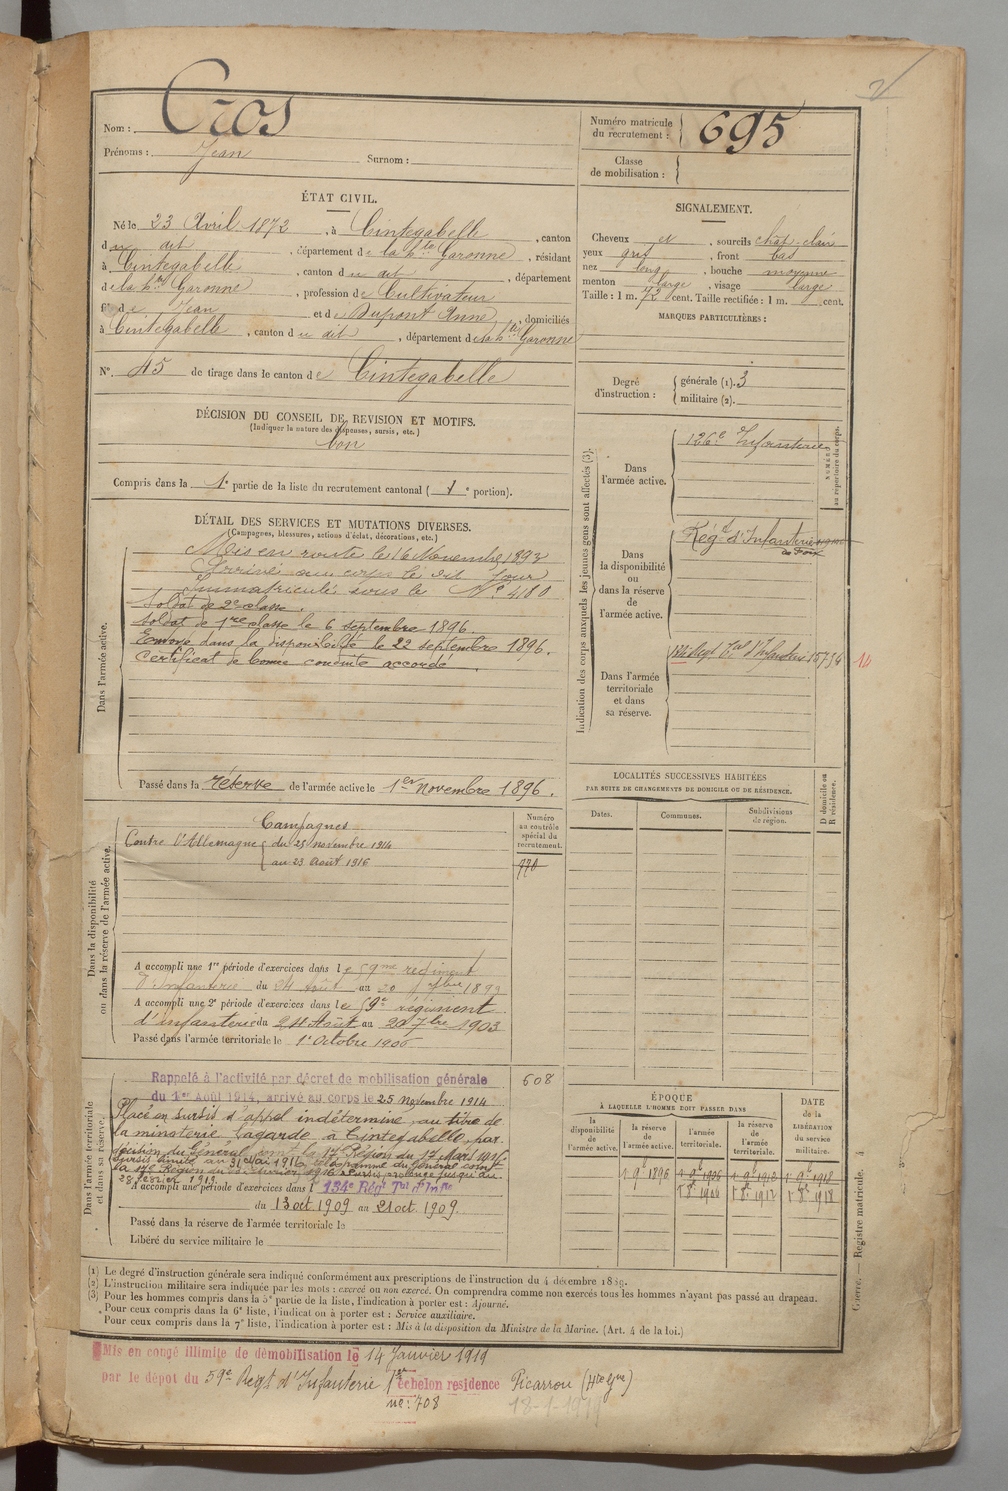 Nom : Cros
Prénoms : Jean Surnom :
Numéro matricule du recrutement : 695
Classe de mobilisation :
ÉTAT CIVIL.
Né le 23 Avril 1872, à Cintegabelle, canton
du dit, département de la hte Garonne, résidant
à Cintegabelle, canton du dit, département
de la hte Garonne, profession de Cultivateur
fils de Jean et de Dupont Anne, domiciliés
à Cintegabelle, canton du dit, département de la hte Garonne
N° 45 de tirage dans le canton de Cintegabelle
DÉCISION DU CONSEIL DE REVISION ET MOTIFS.
(Indiquer la nature des dispenses, sursis, etc.)
bon
Compris dans la 1e partie de la liste du recrutement cantonal (1e portion).
SIGNALEMENT.
Cheveux et, sourcils chat-clair
yeux gris, front bas
nez long, bouche moyenne
menton large, visage large
Taille : 1 m. 72 cent. Taille rectifiée : 1 m. cent.
MARQUES PARTICULIÈRES :
Degré d'instruction : générale (1). 3
militaire (2).
DÉTAIL DES SERVICES ET MUTATIONS DIVERSES.
(Campagnes, blessures, actions d'éclat, décorations, etc.)
Dans l'armée active.
Mis en route le 16 Novembre 1893
Arrivé au corps le dit jour
Immatriculé sous le N° 4180
Soldat de 2e classe.
Soldat de 1re classe le 6 septembre 1896.
Envoyé dans la disponibilité le 22 septembre 1896.
Certificat de bonne conduite accordé.
Passé dans la réserve de l'armée active le 1er novembre 1896.
Indication des corps auxquels les jeunes gens sont affectés (3).
NUMÉRO au répertoire du corps.
Dans l'armée active. 126e Infanterie
Dans la disponibilité ou dans la réserve de l'armée active. Régt d'Infanterie
de Foix
Dans l'armée territoriale et dans sa réserve. 134 Régt Tal d'Infanterie 15734
LOCALITÉS SUCCESSIVES HABITÉES
PAR SUITE DE CHANGEMENTS DE DOMICILE OU DE RÉSIDENCE.
Dates. Communes. Subdivisions de région. D domicile ou R résidence.
Dans la disponibilité ou dans la réserve de l'armée active.
Numéro au contrôle spécial du recrutement.
770
Campagnes
Contre l'Allemagne du 25 novembre 1914
au 23 Août 1916
A accompli une 1re période d'exercices dans le 59me régiment
d'Infanterie du 24 Août au 20 7bre 1899
A accompli une 2e période d'exercices dans le 59e régiment
d'infanterie du 24 Août au 20 7bre 1903
Passé dans l'armée territoriale le 1er Octobre 1906
Dans l'armée territoriale et dans sa réserve.
608
Rappelé à l'activité par décret de mobilisation générale
du 1er Août 1914, arrivé au corps le 25 novembre 1914
Placé en sursis d'appel indéterminé, au titre de
la minoterie Lagarde, à Cintegabelle, par
décision du Général comt la 17e Région du 17 Mars 1916
28 février 1919.
A accompli une période d'exercices dans l 134e Régt Tal d'Infie
du 13 oct. 1909 au 21 oct. 1909.
Passé dans la réserve de l'armée territoriale le
Libéré du service militaire le
ÉPOQUE
À LAQUELLE L'HOMME DOIT PASSER DANS
DATE de la LIBÉRATION du service militaire.
la disponibilité de l'armée active. la réserve de l'armée active. l'armée territoriale. la réserve de l'armée territoriale.
1 9e 1896 1 9e 1906 1 9e 1912 1 9e 1918
1 8e 1906 1 8e 1912 1 8e 1918
(1) Le degré d'instruction générale sera indiqué conformément aux prescriptions de l'instruction du 4 décembre 1889.
(2) L'instruction militaire sera indiquée par les mots : exercé ou non exercé. On comprendra comme non exercés tous les hommes n'ayant pas passé au drapeau.
(3) Pour les hommes compris dans la 5e partie de la liste, l'indication à porter est : Ajourné.
Pour ceux compris dans la 6e liste, l'indication à porter est : Service auxiliaire.
Pour ceux compris dans la 7e liste, l'indication à porter est : Mis à la disposition du Ministre de la Marine. (Art. 4 de la loi.)
Guerre. — Registre matricule. 4
Mis en congé illimité de démobilisation le 14 Janvier 1919
par le dépot du 59e Régt d'Infanterie 1er échelon residence Picarrou (Hte Gne)
ne : 708